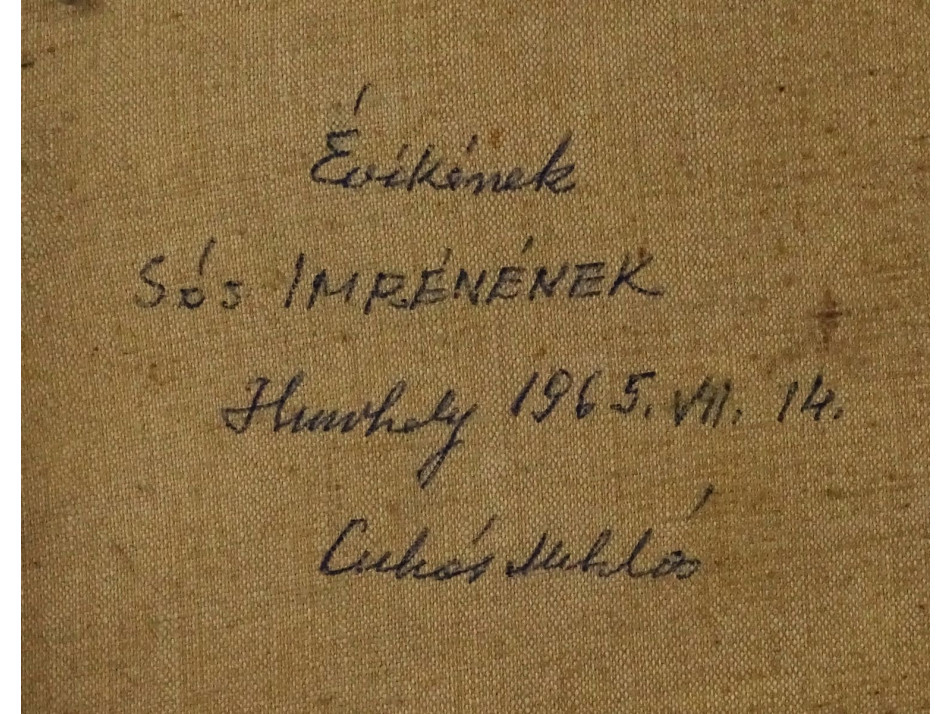 Évikének
Sós IMRÉNÉNEK
Hmvhely 1965. VII. 14.
Cukás Miklós